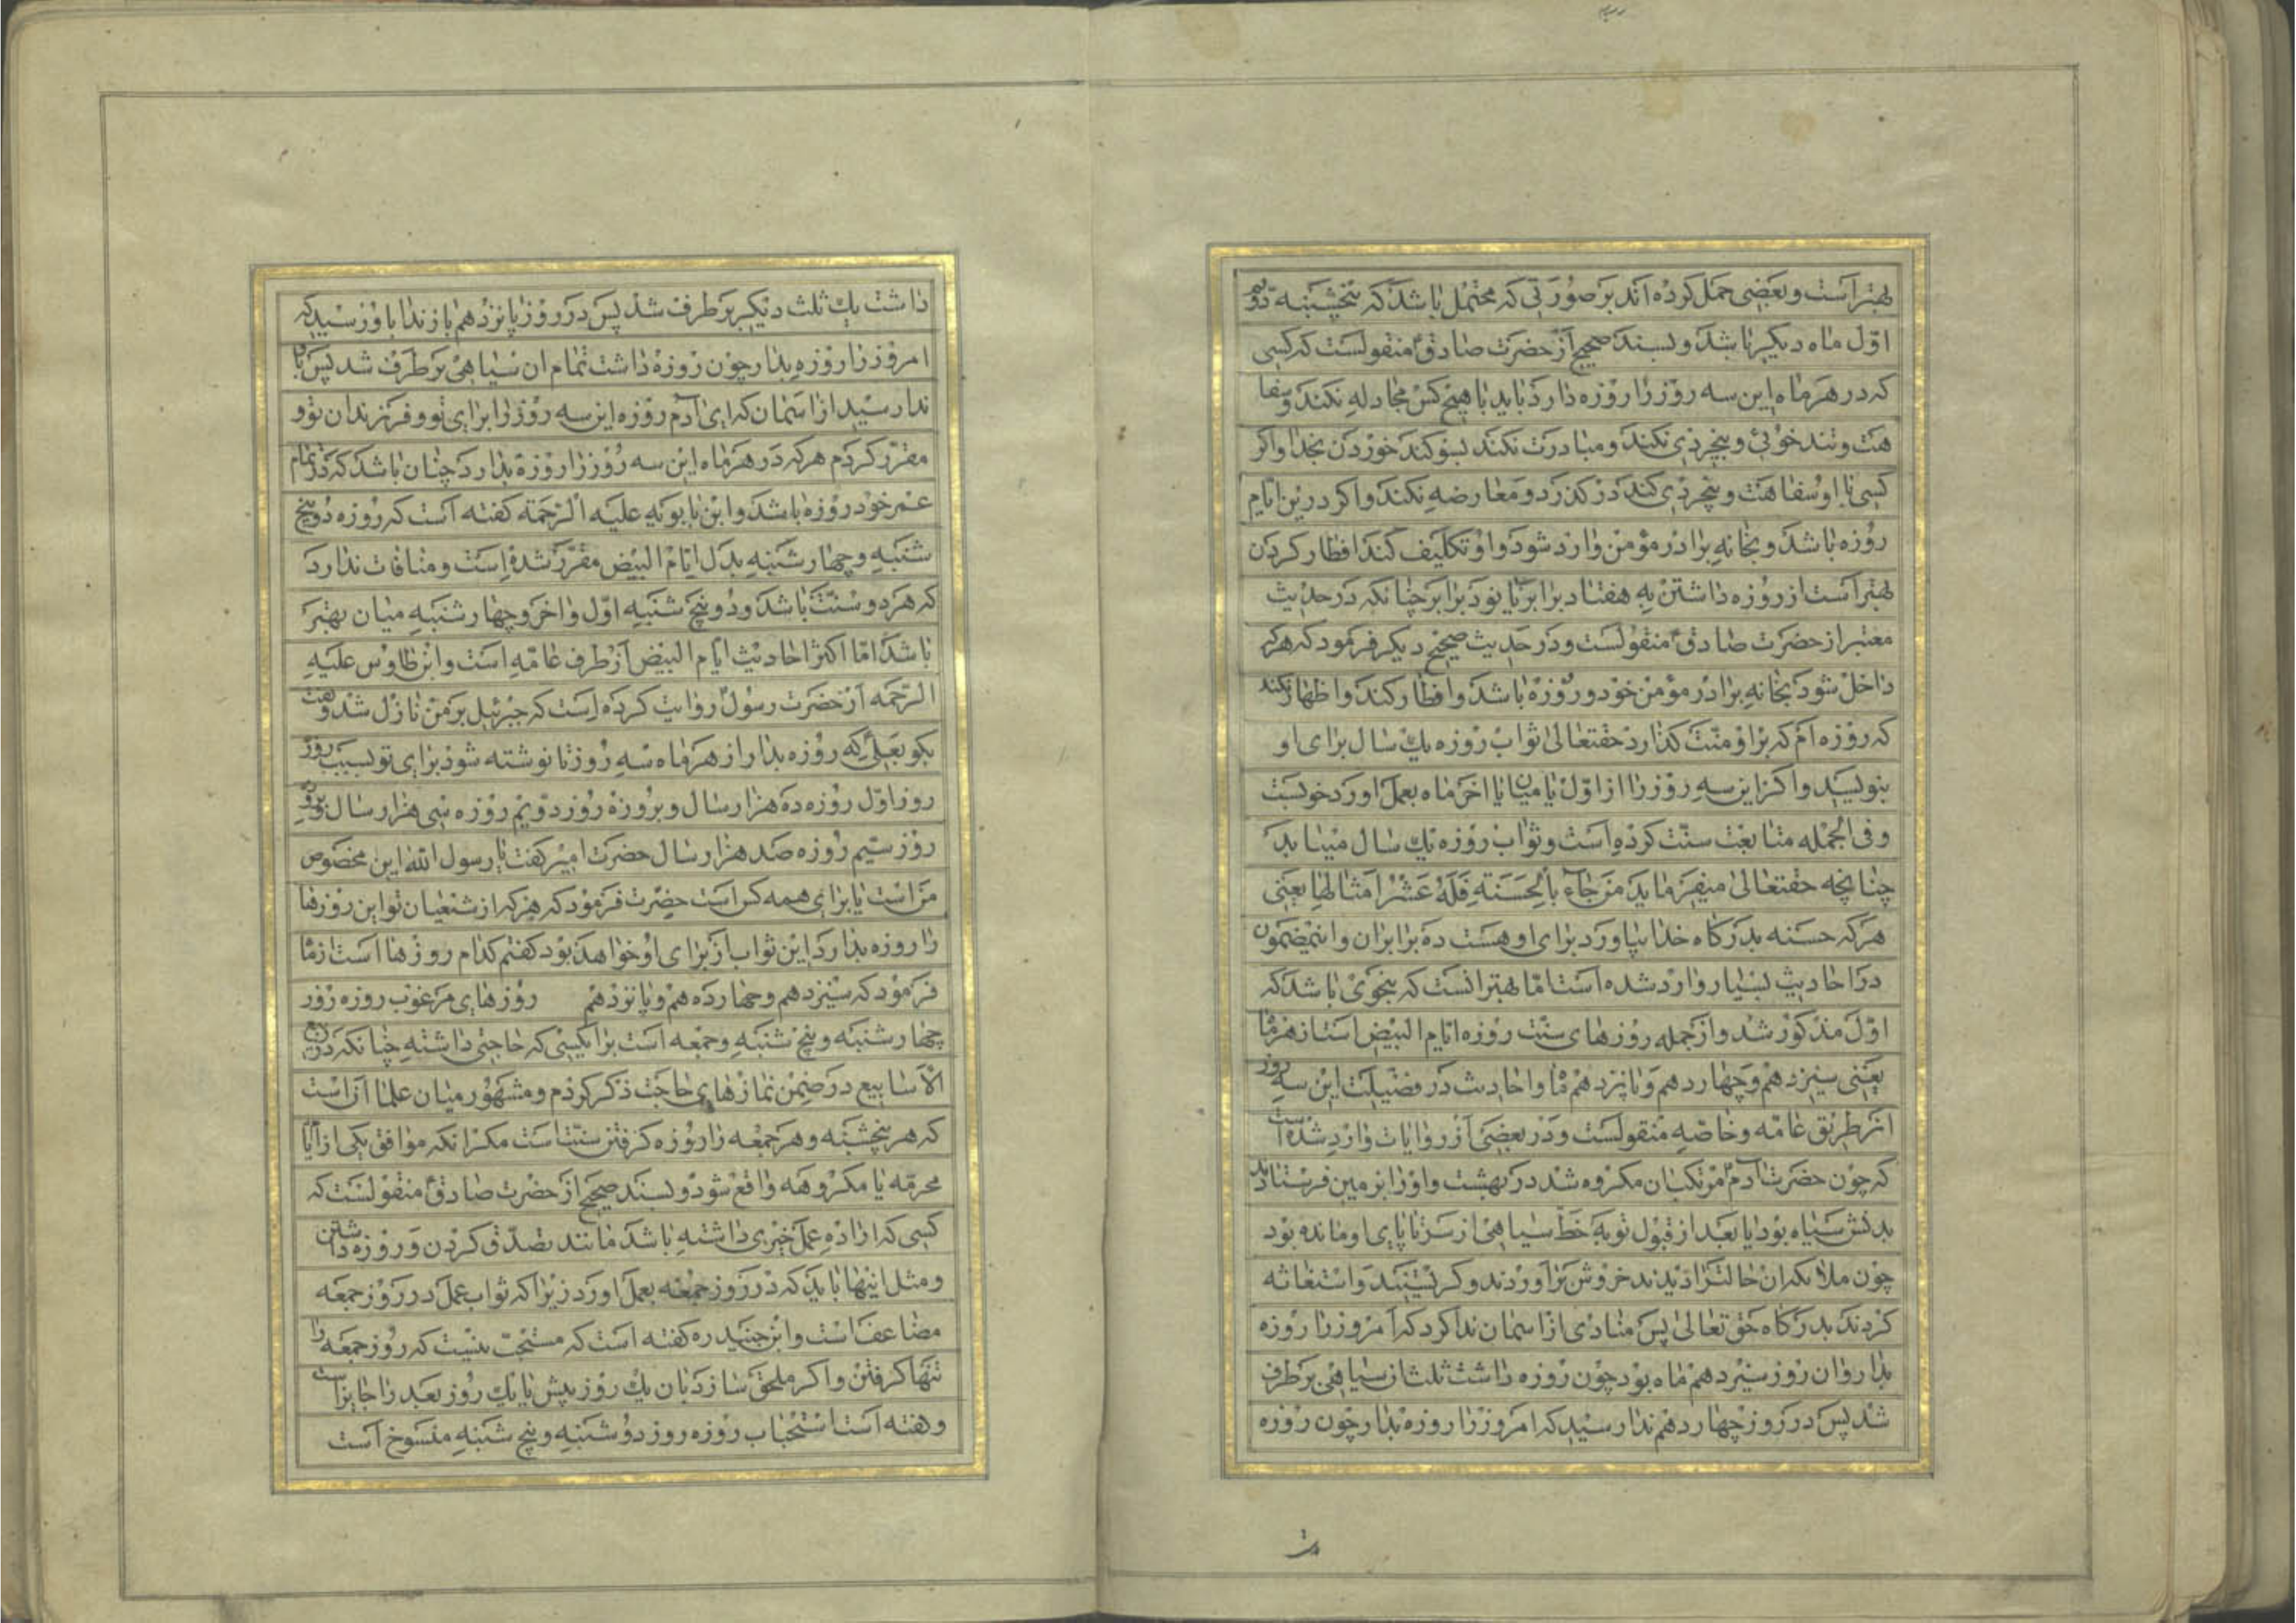 بهتر است و بعضی حمل کرده اند بر صورتی که محتمل باشد که پنجشنبه دویم
اوّل ماه دیکر باشد و بسند صحیح از حضرت صادق ع منقولست که کسی
که در هر ماه این سه روز را روزه دارد باید با هیچ کس مجادله نکند و سفا
هت و تند خوئی و بیخردی نکند و مبادرت نکند بسوکند خوردن بخدا و اکر
کسی با او سفاهت و بیخردی کند درکذرد و معارضه نکند و اکر در این ایام
روزه باشد و بخانه برادر مؤمن وارد شود و او تکلیف کند افطار کردن
بهتر است از روزه داشتن به هفتاد برابر یا نود برابر چنانکه در حدیث
معتبر از حضرت صادق ع منقولست و در حدیث صحیح دیکر فرمود که هر که
داخل شود بخانه برادر مؤمن خود و روزه باشد و افطار کند و اظهار نکند
که روزه ام که بر او منّت کذارد حقتعالی ثواب روزه یک سال برای او
بنویسد و اکر این سه روز را از اوّل یا میان یا اخر ماه بعمل اورد خوبست
و فی الجمله متابعت سنّت کرده است و ثواب روزه یک سال مییابد
چنانچه حقتعالی میفرماید مَن جاءَ بالحَسَنَةِ فَلَهُ عَشْرُ اَمثالِها یعنی
هر که حسنه بدرکاه خدا بیاورد برای او هست ده برابر ان و اینمضمون
در احادیث بسیار وارد شده است امّا بهتر انست که بنحوی باشد که
اوّل مذکور شد و از جمله روزهای سنّت روزه ایام البیض است از هر ماه
یعنی سیزدهم و چهاردهم و پانزدهم ماه و احادیث در فضیلت این سه روز
از طریق عامّه و خاصّه منقولست و در بعضی از روایات وارد شده است
که چون حضرت ادم ع مرتکب ان مکروه شد در بهشت و او را بزمین فرستادند
بدنش سیاه بود یا بعد از قبول توبه خطّ سیاهی از سر تا پای او مانده بود
چون ملائکه ان حالت را دیدند خروش براوردند و کریستند و استغاثه
کردند بدرکاه حق تعالی پس منادی از اسمان ندا کرد که امروز را روزه
بدار و ان روز سیزدهم ماه بود چون روزه داشت ثلث از سیاهی بر طرف
شد پس در روز چهاردهم ندا رسید که امروز را روزه بدار چون روزه
داشت یک ثلث دیکر بر طرف شد پس در روز پانزدهم باز ندا باو رسید که
امروز را روزه بدار چون روزه داشت تمام ان سیاهی بر طرف شد پس
ندا رسید از اسمان که ای آدم روزه این سه روز را برای تو و فرزندان تو و
مقرّر کردم هر که در هر ماه این سه روز را روزه بدارد چنان باشد که در تمام
عمر خود روزه باشد و ابن بابویه علیه الرّحمة کفته است که روزه دو پنج
شنبه و چهار شنبه بدل ایام البیض مقرّر شده است و منافات ندارد
که هر دو سنّت باشد و دو پنج شنبه اوّل و اخر و چهار شنبه میان بهتر
باشد امّا اکثر احادیث ایام البیض از طرف عامّه است و ابن طاوس علیه
الرّحمه از حضرت رسول ص روایت کرده است که جبرئیل بر من نازل شد و کفت
بکو بعلی ع که روزه بدار از هر ماه سه روز تا نوشته شود برای تو بسبب روزه
روز اوّل روزه ده هزار سال و بروزه روز دویم روزه سی هزار سال و بروزه
روز سیّم روزه صد هزار سال حضرت امیر ع کفت یا رسول الله این مخصوص
من است یا برای همه کس است حضرت فرمود که هر که از شیعیان تو این روزها
را روزه بدارد این ثواب از برای او خواهد بود کفتم کدام روزها است از ماه
فرمود که سیزدهم و چهاردهم و پانزدهم روزهای مرغوب روزه روز
چهار شنبه و پنج شنبه و جمعه است برای کسی که حاجتی داشته چنانکه در ربیع
الاسابیع در ضمن نمازهای حاجت ذکر کردم و مشهور میان علما ان است
که هر پنجشنبه و هر جمعه را روزه کرفتن سنّت است مکر انکه موافق یکی از ایّام
محرمّه یا مکروهه واقع شود و بسند صحیح از حضرت صادق ع منقولست که
کسی که اراده عمل خیری داشته باشد مانند تصدّق کردن و روزه داشتن
و مثل اینها باید که در روز جمعه بعمل اورد زیرا که ثواب عمل در روز جمعه
مضاعف است و ابن جنید ره کفته است که مستحبّ نیست که روز جمعه را
تنها کرفتن و اکر ملحق سازد بان یک روز پیش یا یک روز بعد را جایز است
و هفته است استحباب روزه روز دوشنبه و پنج شنبه منسوخ است